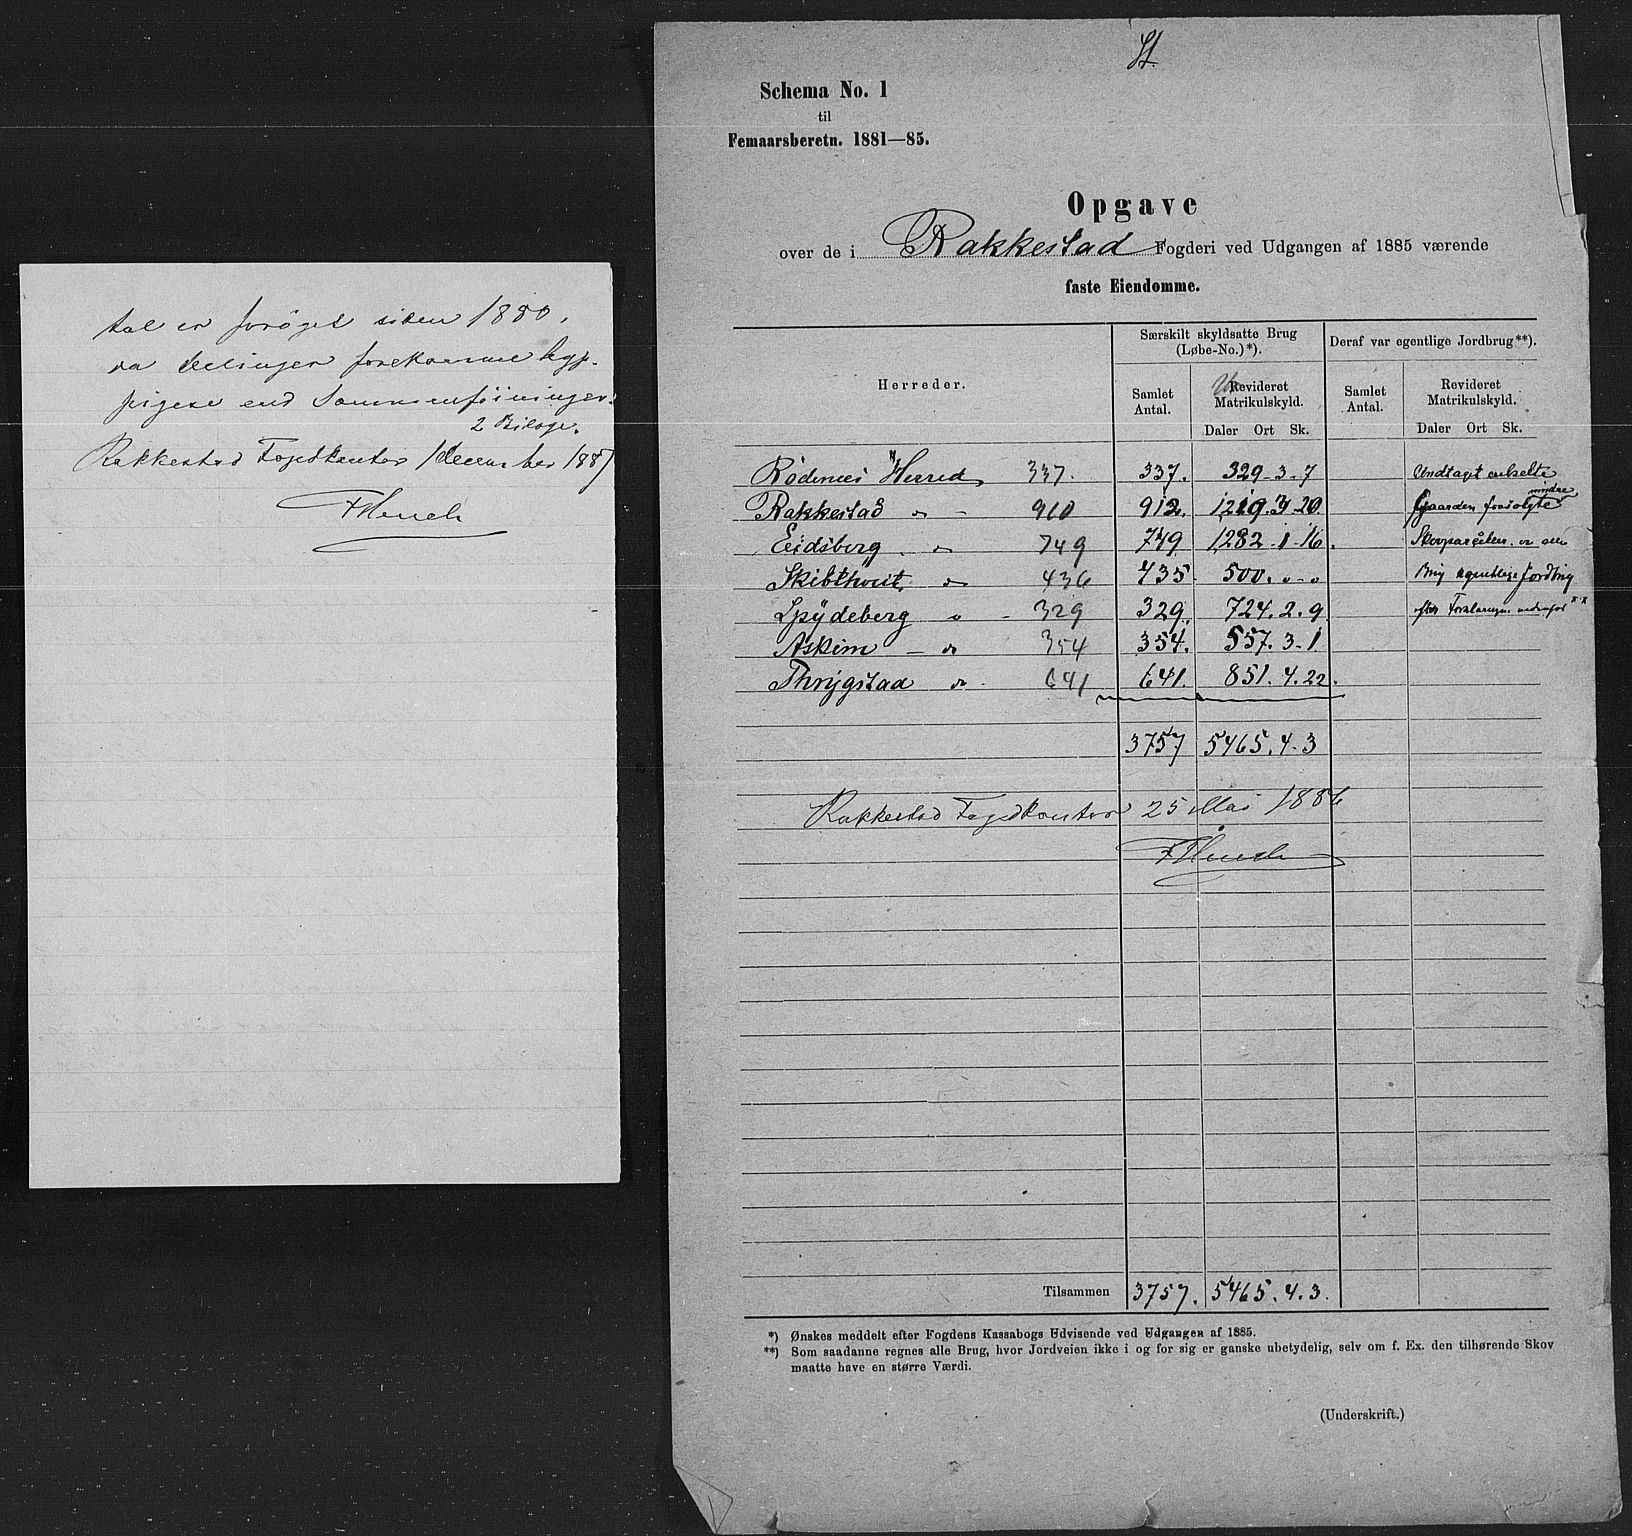 tal er forøget siden 1880,
da Delinger forekomme hyp-
pigere end Sammenføininger.
2 Bilage.
Rakkestad Fogedkontor 1 December 1887
Schema No. 1
til
Femaarsberetn. 1881—85.
Opgave
over de i Rakkestad Fogderi ved Udgangen af 1885 værende
faste Eiendomme.
Herreder. Særskilt skyldsatte Brug (Løbe-No.)*). Deraf var egentlige Jordbrug**).
Samlet Antal. Revideret Matrikulskyld. Samlet Antal. Revideret Matrikulskyld.
Daler Ort Sk. Daler Ort Sk.
Rødenes Herred 337. 337. 329-3-7 Undtaget enkelte
Rakkestad " - 910 912. 1219.3.20 mindre
Gaarden frasolgte
Eidsberg. " 749 749 1282-1-16. Skovparceler er alle
Skibthvet. " 436 435 500.0-0 Brug egentlige Jordbrug
Spydeberg " - 329 329. 724.2.9 efter Forklaringen nedenfor **
Askim - " 354 354. 557.3-1
Thrygstad " 641 641. 851.4.22.
3757 5465.4.3
Rakkestad Fogedkontor 25 Mai 1886
Tilsammen 3757. 5465.4.3.
*) Ønskes meddelt efter Fogdens Kassabogs Udvisende ved Udgangen af 1885.
**) Som saadanne regnes alle Brug, hvor Jordveien ikke i og for sig er ganske ubetydelig, selv om f. Ex. den tilhørende Skov
maatte have en større Værdi.
(Underskrift.)